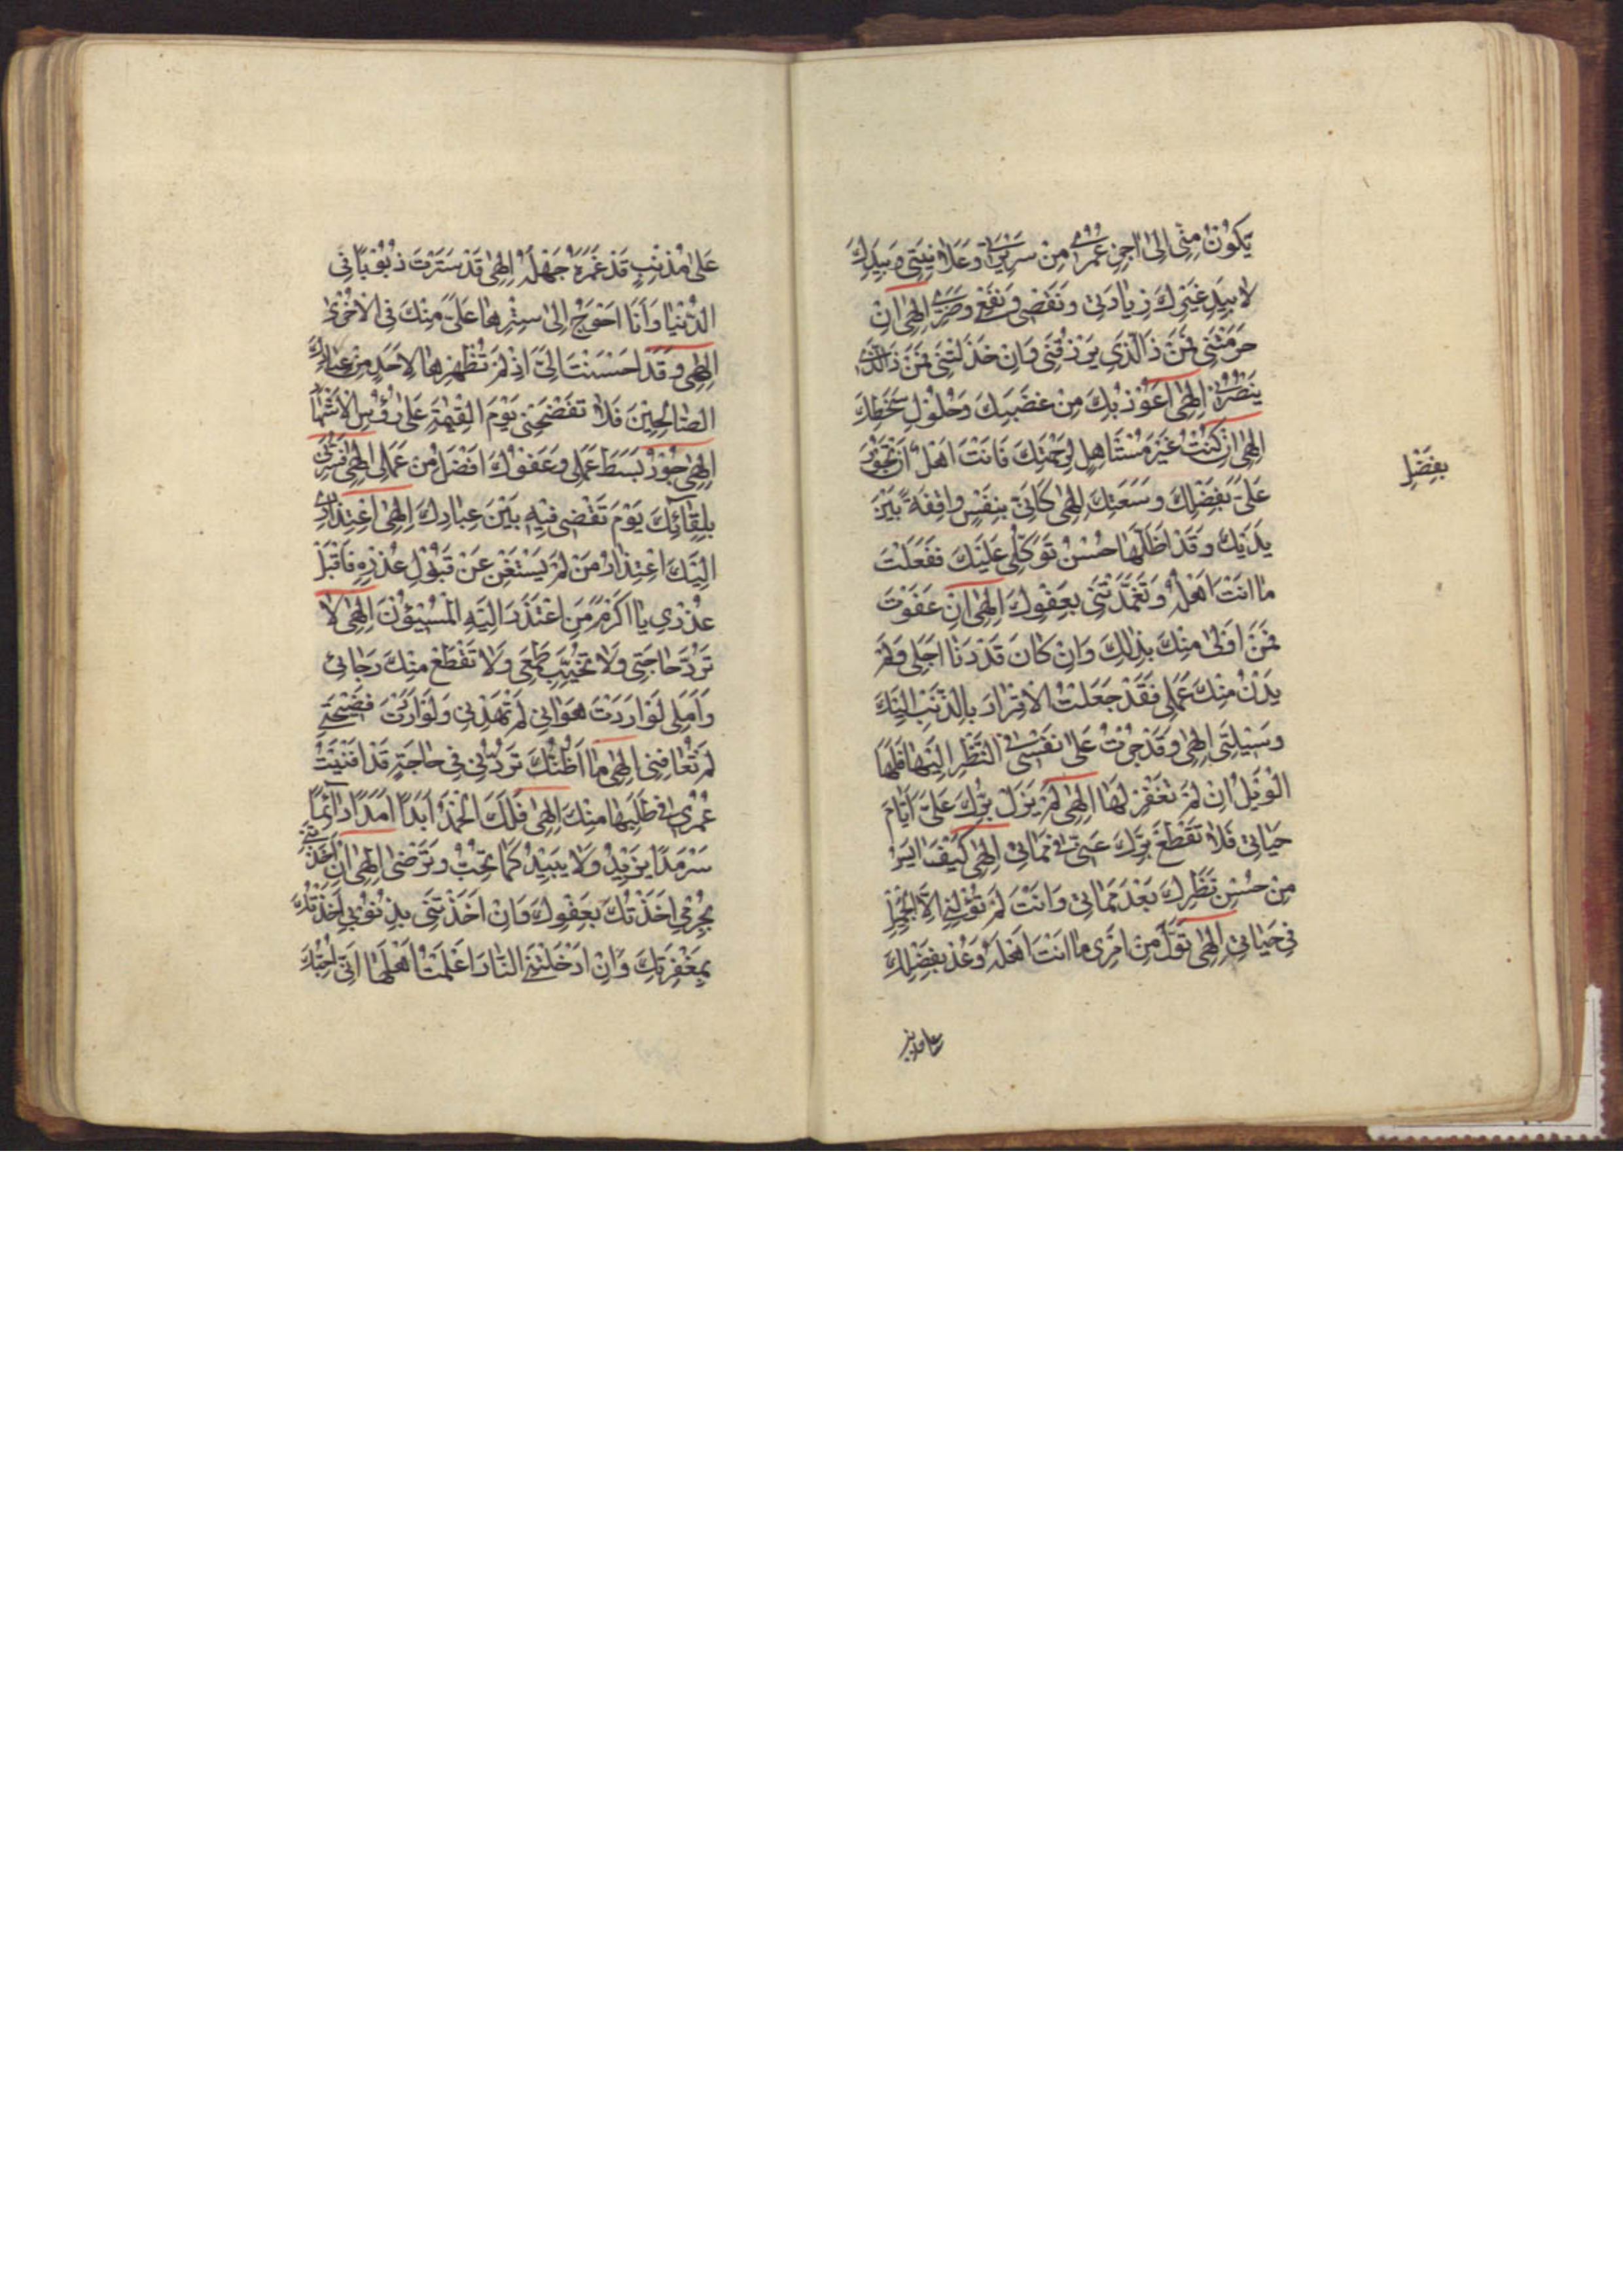 يَكُونُ مِنّي اِلىٰ اٰخِرِ عُمْري مِنْ سَريرَتي وَعَلانِيَتي وَبِيَدِكَ
لا بِيَدِ غَيْرِكَ زِيادَتي وَنَقْصي وَنَفْعي وَضَرّي اِلٰهي اِنْ
حَرَمْتَني فَمَنْ ذَا الَّذي يَرْزُقُني وَاِنْ خَذَلْتَني فَمَنْ ذَا الَّذي
يَنْصُرُني اِلٰهي اَعُوذُ بِكَ مِنْ غَضَبِكَ وَحُلُولِ سَخَطِكَ
اِلٰهي اِنْ كُنْتُ غَيْرَ مُسْتَاْهِلٍ لِرَحْمَتِكَ فَاَنْتَ اَهْلٌ اَنْ تَجُودَ
عَلَيَّ بِفَضْلِكَ وَسَعَتِكَ اِلٰهي كَاَنّي بِنَفْسي واقِفَةً بَيْنَ
بِفَضْلِ
يَدَيْكَ وَقَدْ اَظَلَّها حُسْنُ تَوَكُّلي عَلَيْكَ فَفَعَلْتَ
ما اَنْتَ اَهْلُهُ وَتَغَمَّدْتَني بِعَفْوِكَ اِلٰهي اِنْ عَفَوْتَ
فَمَنْ اَوْلىٰ مِنْكَ بِذٰلِكَ وَاِنْ كانَ قَدْ دَنا اَجَلي وَلَمْ
يَدْنُ مِنْكَ عَمَلي فَقَدْ جَعَلْتُ الْاِقْرارَ بِالذَّنْبِ اِلَيْكَ
وَسيلَتي اِلٰهي وَقَدْ جُرْتُ عَلىٰ نَفْسي فِي النَّظَرِ اِلَيْها فَلَهَا
الْوَيْلُ اِنْ لَمْ تَغْفِرْ لَها اِلٰهي لَمْ يَزَلْ بِرُّكَ عَلَيَّ اَيّامَ
حَياتي فَلا تَقْطَعْ بِرَّكَ عَنّي في مَماتي اِلٰهي كَيْفَ ايَسُ
مِنْ حُسْنِ نَظَرِكَ بَعْدَ مَماتي وَاَنْتَ لَمْ تُوَلِّني اِلَّا الْجَميلَ
في حَياتي اِلٰهي تَوَلَّ مِنْ اَمْري ما اَنْتَ اَهْلُهُ وَعُدْ بِفَضْلِكَ
عَلىٰ مُذْنِبٍ قَدْ غَمَرَهُ جَهْلُهُ اِلٰهي قَدْ سَتَرْتَ ذُنُوباً فِي
الدُّنْيا وَاَنَا اَحْوَجُ اِلىٰ سَتْرِها عَلَيَّ مِنْكَ فِي الْاُخْرىٰ
اِلٰهي وَقَدْ اَحْسَنْتَ اِلَيَّ اِذْ لَمْ تُظْهِرْها لِاَحَدٍ مِنْ عِبادِكَ
الصّالِحينَ فَلا تَفْضَحْني يَوْمَ الْقِيٰمَةِ عَلىٰ رُؤُسِ الْاَشْهادِ
اِلٰهي جُودُكَ بَسَطَ عَمَلي وَعَفْوُكَ اَفْضَلُ مِنْ عَمَلي اِلٰهي فَسُرَّني
بِلِقائِكَ يَوْمَ تَقْضي فيهِ بَيْنَ عِبادِكَ اِلٰهي اعْتِذاري
اِلَيْكَ اعْتِذارُ مَنْ لَمْ يَسْتَغْنِ عَنْ قَبُولِ عُذْرِهِ فَاقْبَلْ
عُذْري يا اَكْرَمَ مَنِ اعْتَذَرَ اِلَيْهِ الْمُسيؤُنَ اِلٰهي لا
تَرُدَّ حاجَتي وَلا تُخَيِّبْ طَمَعي وَلا تَقْطَعْ مِنْكَ رَجائي
وَاَمَلي لَوْ اَرَدْتَ هَواني لَمْ تَهْدِني وَلَوْ اَرَدْتَ فَضيحَتي
لَمْ تُعافِني اِلٰهي ما اَظُنُّكَ تَرُدُّني في حاجَةٍ قَدْ اَفْنَيْتُ
عُمْري في طَلَبِها مِنْكَ اِلٰهي فَلَكَ الْحَمْدُ اَبَداً اَمَداً دآئِماً
سَرْمَداً يَزيدُ وَلا يَبيدُ كَما تُحِبُّ وَتَرْضىٰ اِلٰهي اِنْ اَخَذْتَني
بِجُرْمي اَخَذْتُكَ بِعَفْوِكَ وَاِنْ اَخَذْتَني بِذُنُوبي اَخَذْتُكَ
بِمَغْفِرَتِكَ وَاِنْ اَدْخَلْتَنِي النّارَ اَعْلَمْتُ اَهْلَها اَنّي اُحِبُّكَ